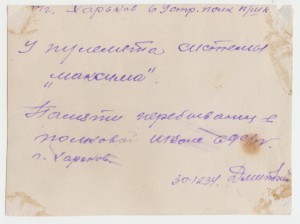 г. Харьков 6 устр. полк
У пулемета системы
"максима".
Памяти пребывания в
полковой школе
г. Харьков
30-12 34. Дмит